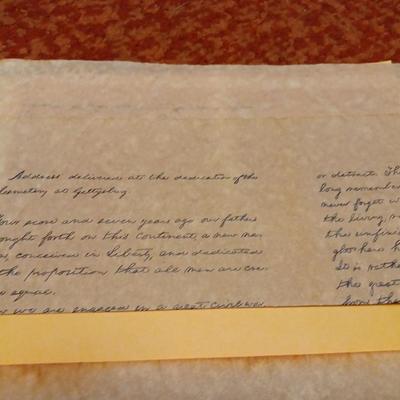 Address delivered at the dedication of the
Cemetery at Gettysburg
Four score and seven years ago our fathers
ought forth on this continent, a new na-
conceived in Liberty, and dedicated
the proposition that all men are cre-
equal.
we are engaged in a great civil war
or detract. The
long remember
never forget w
the living,
the unfinis
here
It is rathe
the great
from the